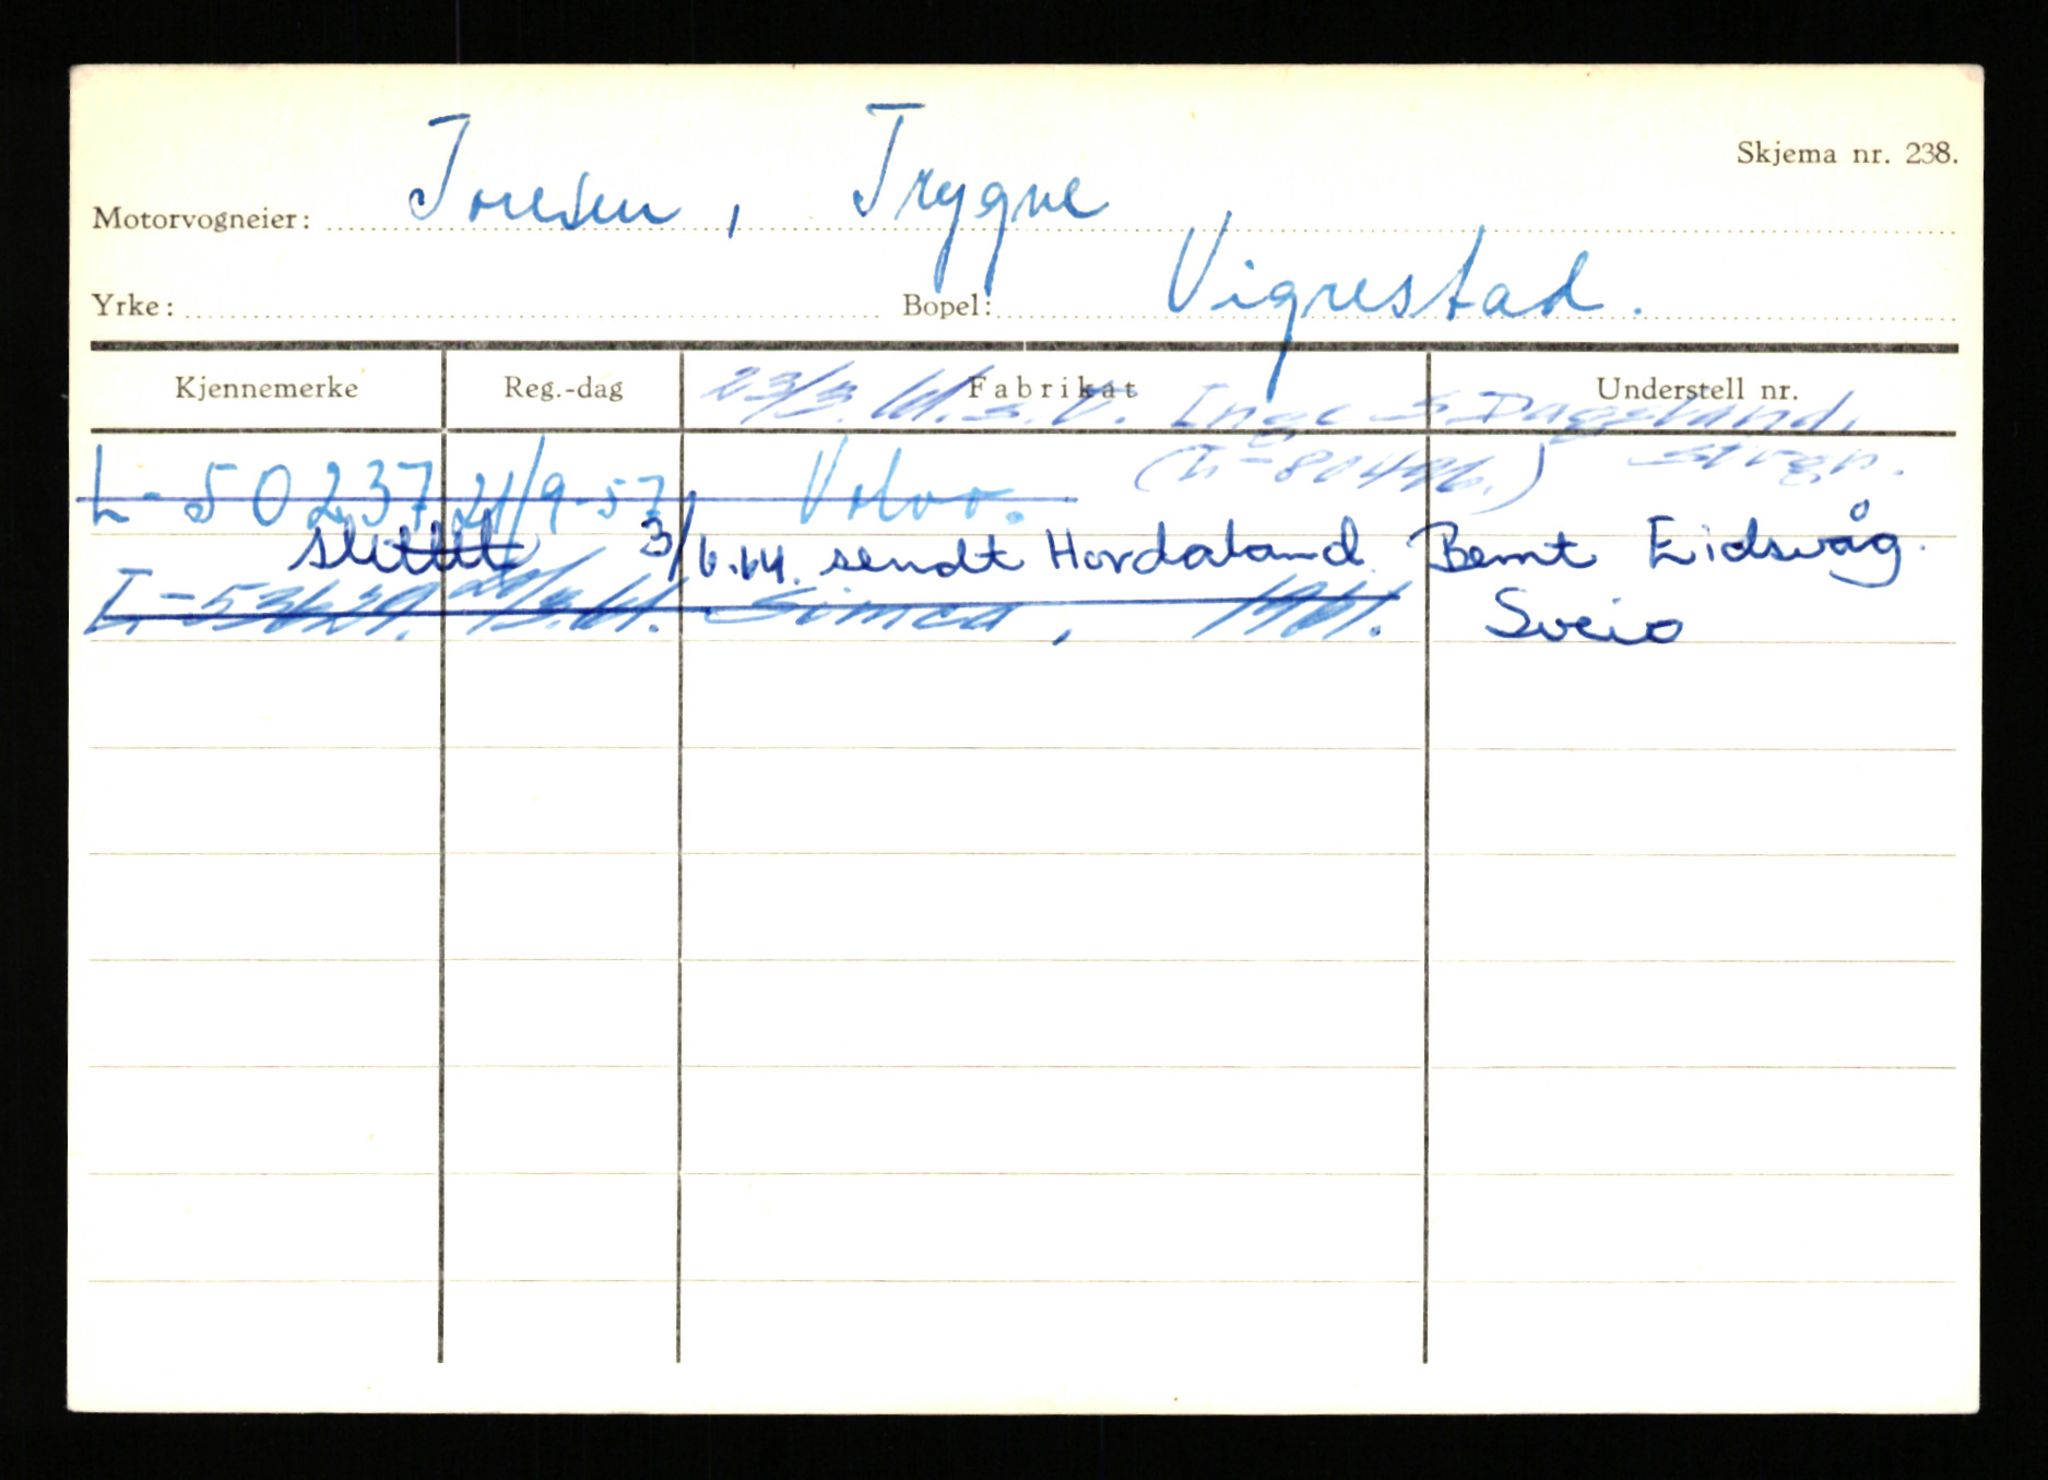 Skjema nr. 238.
Motorvogneier: Tonesen, Trygve
Yrke: Bopel: Vigrestad.
Kjennemerke Reg.-dag Fabrikat Understell nr.
23/3.61. s.t. Inge S Dagsland,
L-50237 21/9-57 Volvo. (L-80496.)
slettet 3/6.64. sendt Hordaland Bernt Eidsvåg.
L-53639. /3.61. Simca, 1961. Sveio